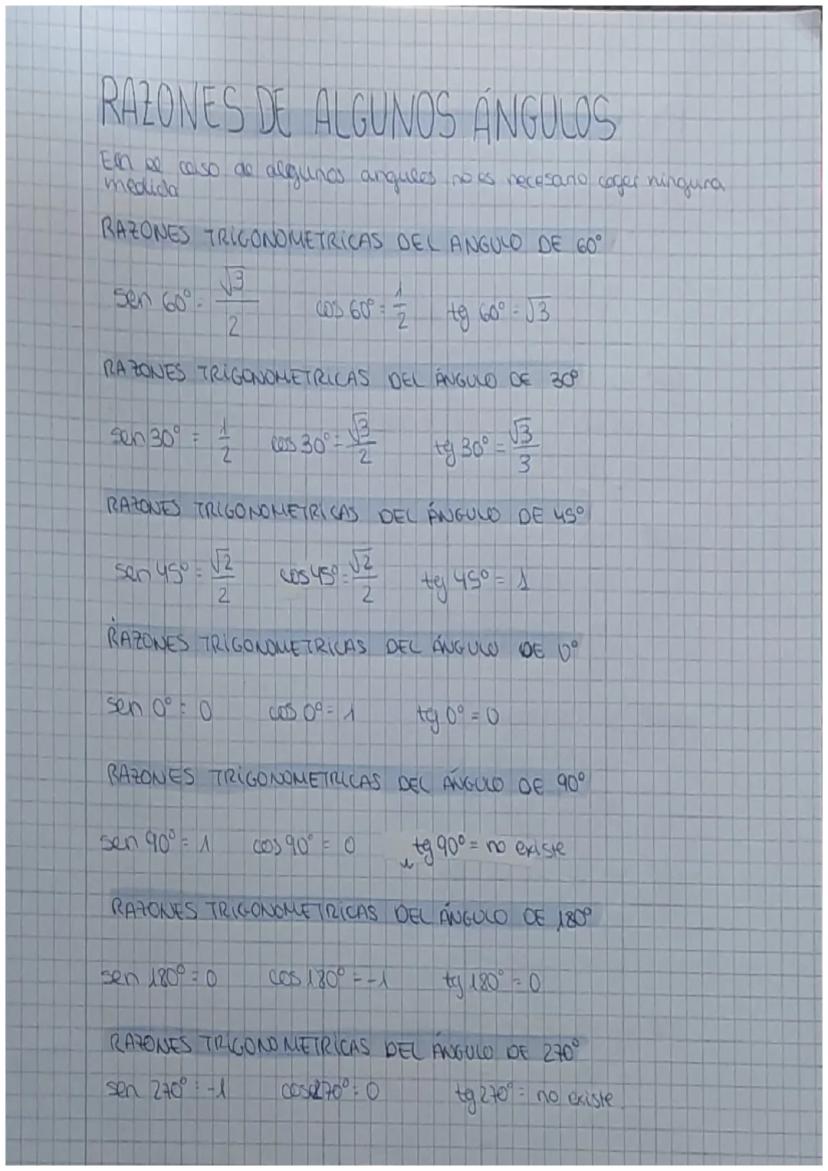 RAZONES DE ALGUNOS ÁNGULOS
En el caso de algunos angulos no es necesario coger ninguna
medida
RAZONES TRIGONOMETRICAS DEL ANGULO DE 60º
sen 60º = √3/2 cos 60º = 1/2 tg 60º = √3
RAZONES TRIGONOMETRICAS DEL ÁNGULO DE 30º
sen 30º = 1/2 cos 30º = √3/2 tg 30º = √3/3
RAZONES TRIGONOMETRICAS DEL ÁNGULO DE 45º
sen 45º = √2/2 cos 45º = √2/2 tg 45º = 1
RAZONES TRIGONOMETRICAS DEL ÁNGULO DE 0º
sen 0º = 0 cos 0º = 1 tg 0º = 0
RAZONES TRIGONOMETRICAS DEL ÁNGULO DE 90º
sen 90º = 1 cos 90º = 0 tg 90º = no existe
RAZONES TRIGONOMETRICAS DEL ÁNGULO DE 180º
sen 180º = 0 cos 180º = -1 tg 180º = 0
RAZONES TRIGONOMETRICAS DEL ÁNGULO DE 270º
sen 270º = -1 cos 270º = 0 tg 270º = no existe